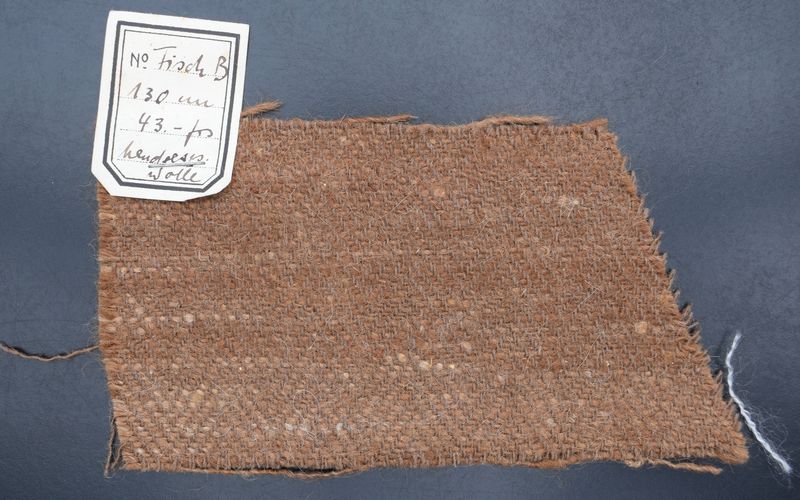 No Fisch B
130 cm
43.- frs
handges.
Wolle